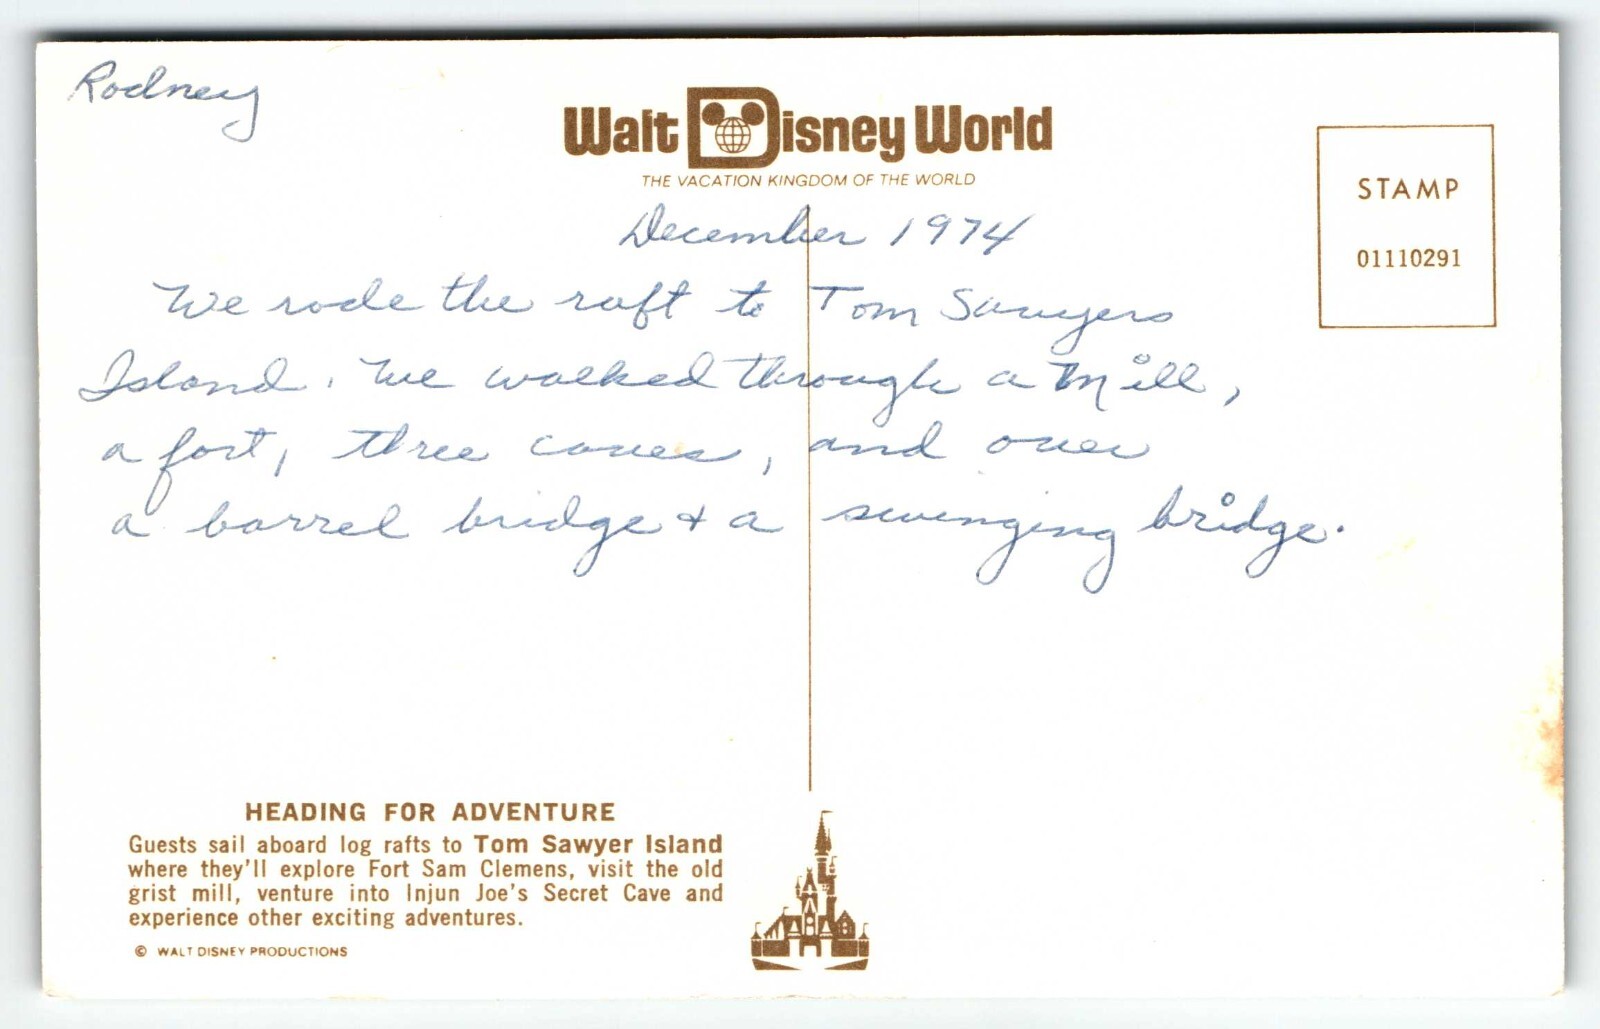 Rodney
Walt Disney World
THE VACATION KINGDOM OF THE WORLD
STAMP
01110291
December 1974
We rode the raft to Tom Sawyers
Island. We walked through a Mill,
a fort, three caves, and over
a barrel bridge + a swinging bridge.
HEADING FOR ADVENTURE
Guests sail aboard log rafts to Tom Sawyer Island
where they'll explore Fort Sam Clemens, visit the old
grist mill, venture into Injun Joe's Secret Cave and
experience other exciting adventures.
© WALT DISNEY PRODUCTIONS